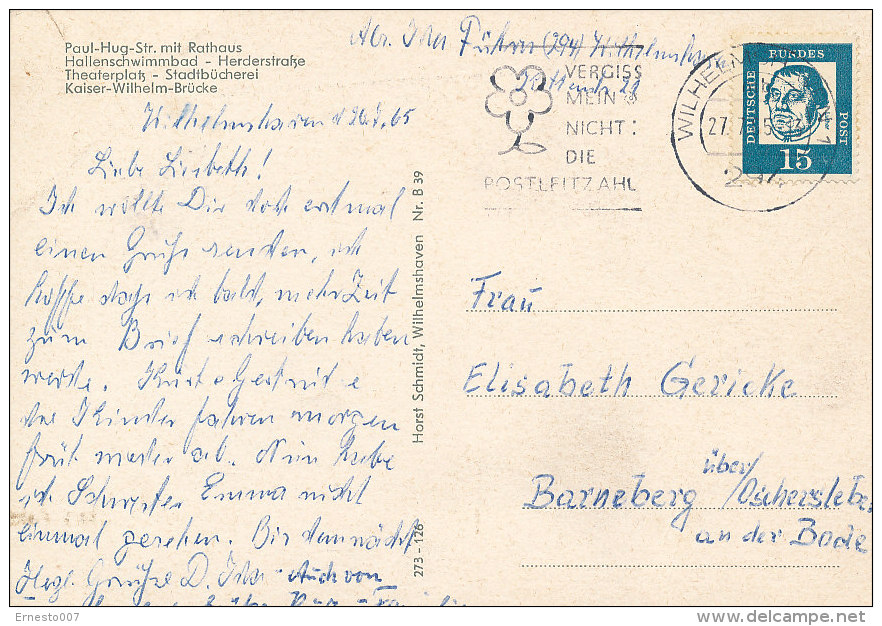 Paul-Hug-Str. mit Rathaus
Hallenschwimmbad - Herderstraße
Theaterplatz - Stadtbücherei
Kaiser-Wilhelm-Brücke
Abs. Ida Führer (294) Wilhelmshaven
VERGISS
MEIN
NICHT:
DIE
POSTLEITZAHL
WILHELM
27.7.65
DEUTSCHE
BUNDES
POST
15
Wilhelmshaven d 26.7.65
Liebe Lisbeth!
Ich wollte Dir doch erstmal
einen Gruß senden, ich
hoffe dass ich bald, mehr Zeit
zum Brief schreiben haben
werde. Kurt & Gertrud &
die Kinder fahren morgen
früh wieder ab. Nun habe
ich Schwester Emma nicht
einmal gesehen. Bis demnächst
Herzl. Grüße D. Ida Auch von
Horst Schmidt, Wilhelmshaven Nr. B 39
273-126
Frau
Elisabeth Gericke
Barneberg über/Oschersleben
an der Bode
Ernesto007
delcampe.net